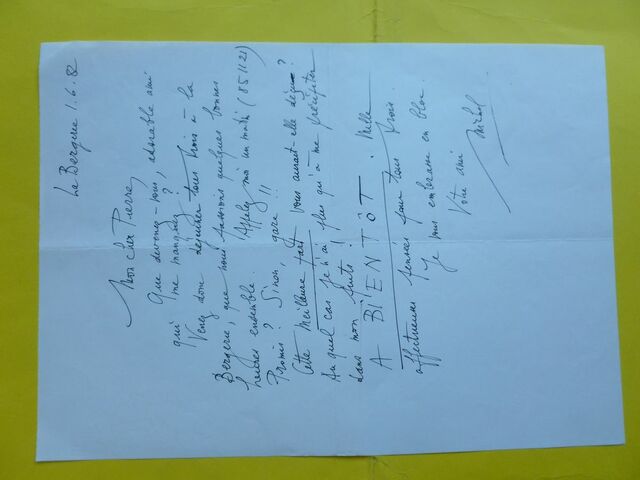 La Bergerie 1.6.82
Mon cher Pierre,
Que devenez-vous, adorable ami
qui me manquez ?
Venez donc déjeuner tous trois à la
Bergerie, que nous passions quelques bonnes
heures ensemble. Appelez-moi un matin (05 11 21)
Promis ? Sinon, gare !!
Cette Meilleure part vous aurait-elle déçu ?
Au quel cas je n'ai plus qu'à me précipiter
dans mon puits !
A BIENTÔT. Mille
affectueuses pensées pour tous trois.
Je vous embrasse en bloc.
Votre ami
Michel